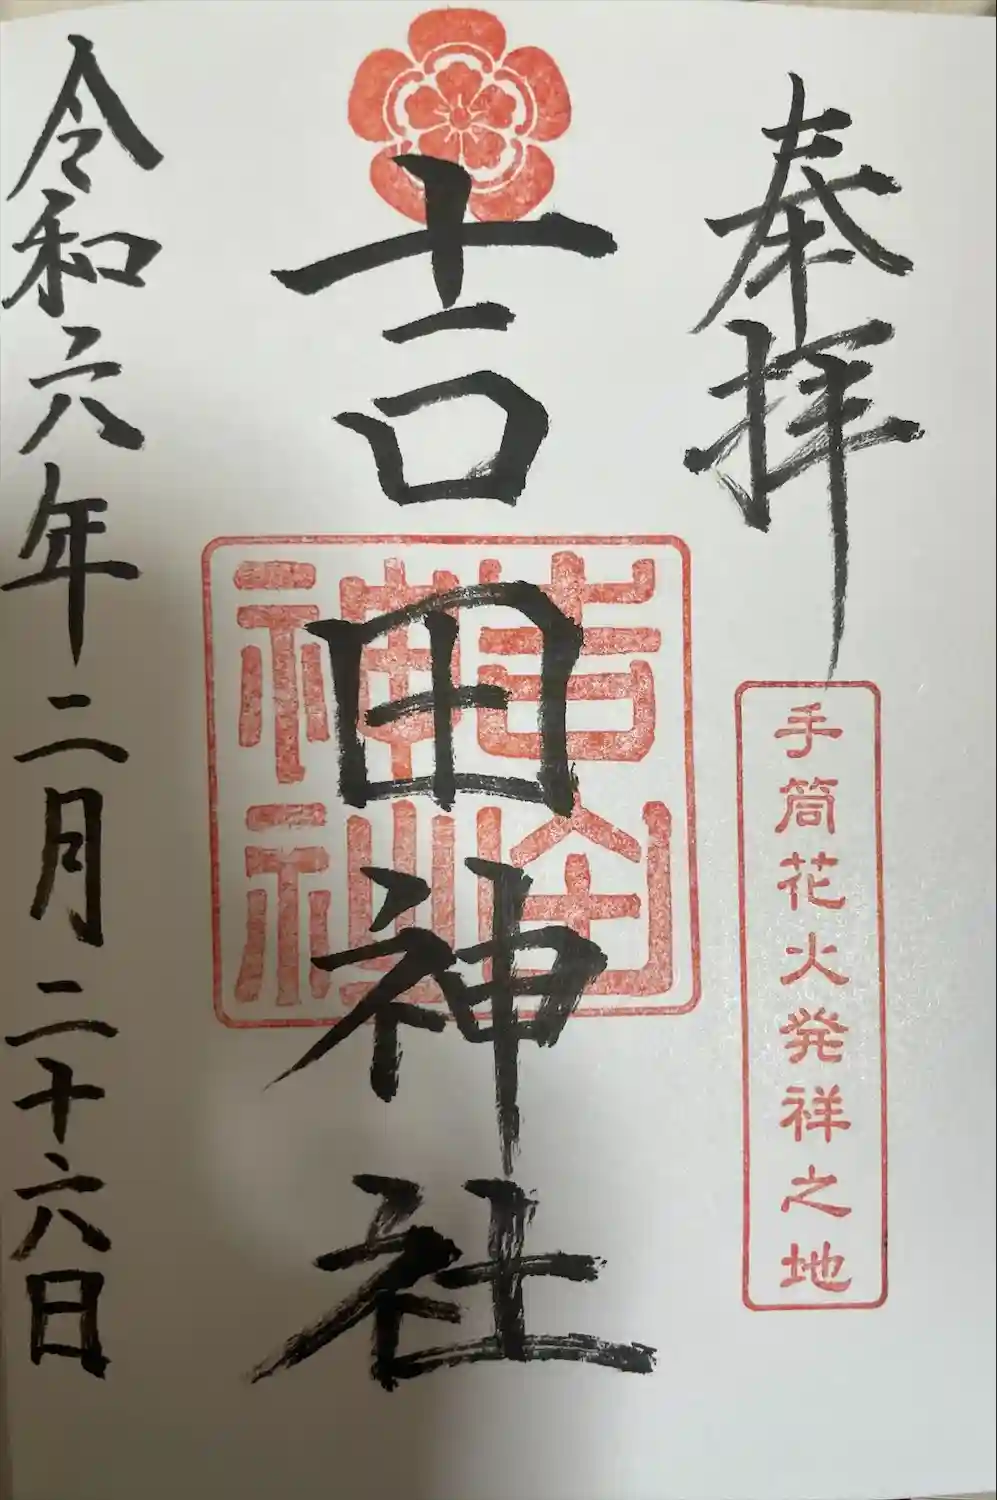 奉拝
手筒花火発祥之地
吉田神社
吉田
神社
令和六年二月二十六日